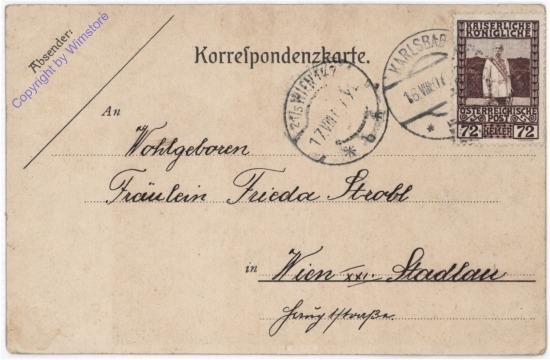 Absender:
Copyright by Wimstore
Korrespondenzkarte.
KARLSBAD
KAISERLICHE
KÖNIGLICHE
ÖSTERREICHISCHE
POST
72 HELLER 72
WIEN
17 VIII
An
Wohlgeboren
Fräulein Frieda Strobl
in Wien XXI. Stadlau
Hauptstraße.